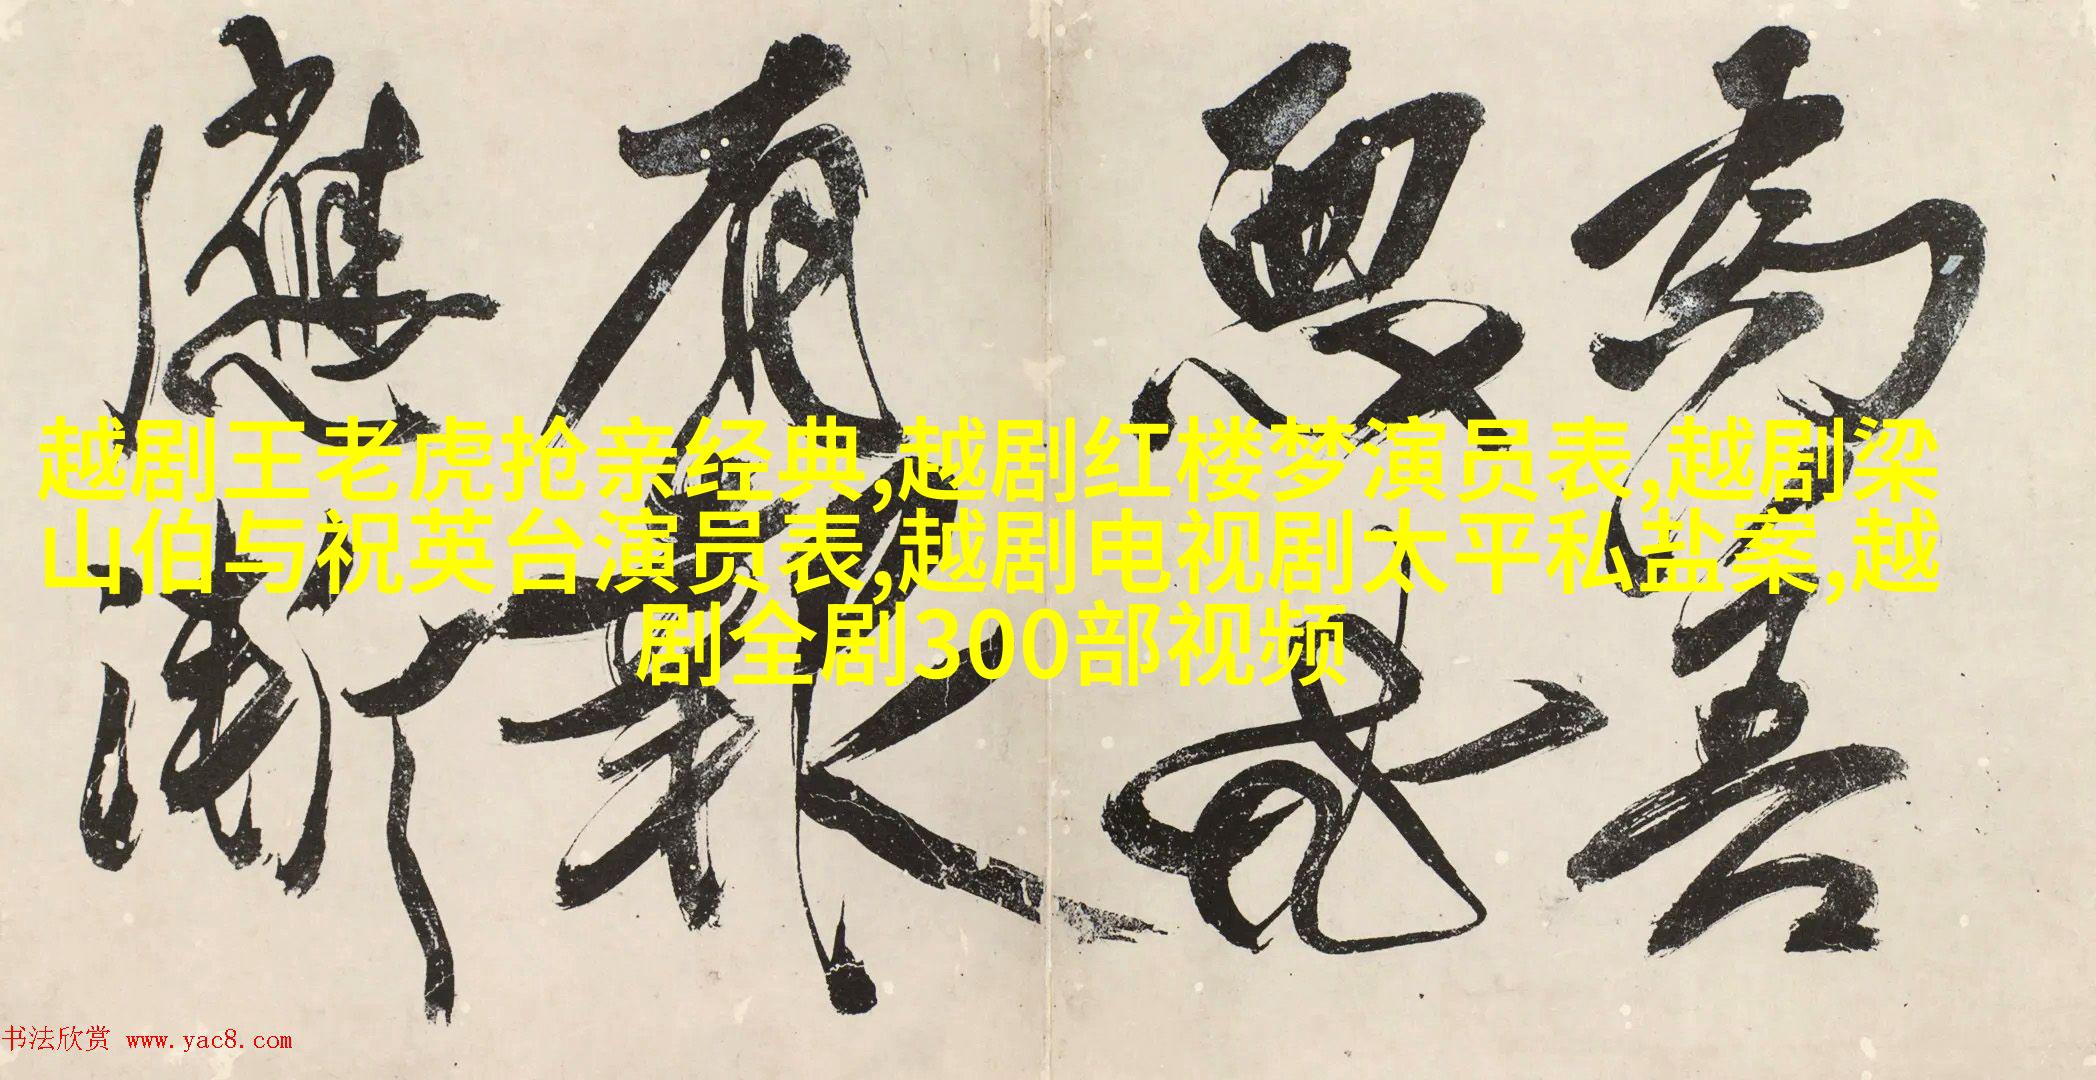 為善
惡
有報
應漸
越剧王老虎抢亲经典,越剧红楼梦演员表,越剧梁
山伯与祝英台演员表,越剧电视剧太平私盐案,越
剧全剧300部视频
书法欣赏 www.yac8.com